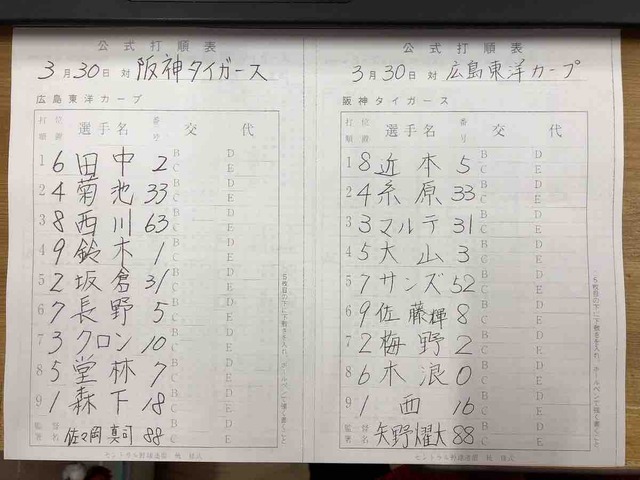 公式打順表
3月30日 対 阪神タイガース
広島東洋カープ
打順 位置 選手名 番号 交代
1 6 田中 2 B C D E
2 4 菊池 33 B C D E
3 8 西川 63 B C D E
4 9 鈴木 1 B C D E
5 2 坂倉 31 B C D E
6 7 長野 5 B C D E
7 3 クロン 10 B C D E
8 5 堂林 7 B C D E
9 1 森下 18 B C D E
監督 署名 佐々岡真司 88
公式打順表
3月30日 対 広島東洋カープ
阪神タイガース
打順 位置 選手名 番号 交代
1 8 近本 5 B C D E
2 4 糸原 33 B C D E
3 3 マルテ 31 B C D E
4 5 大山 3 B C D E
5 7 サンズ 52 B C D E
6 9 佐藤輝 8 B C D E
7 2 梅野 2 B C D E
8 6 木浪 0 B C D E
9 1 西 16 B C D E
監督 署名 矢野燿大 88